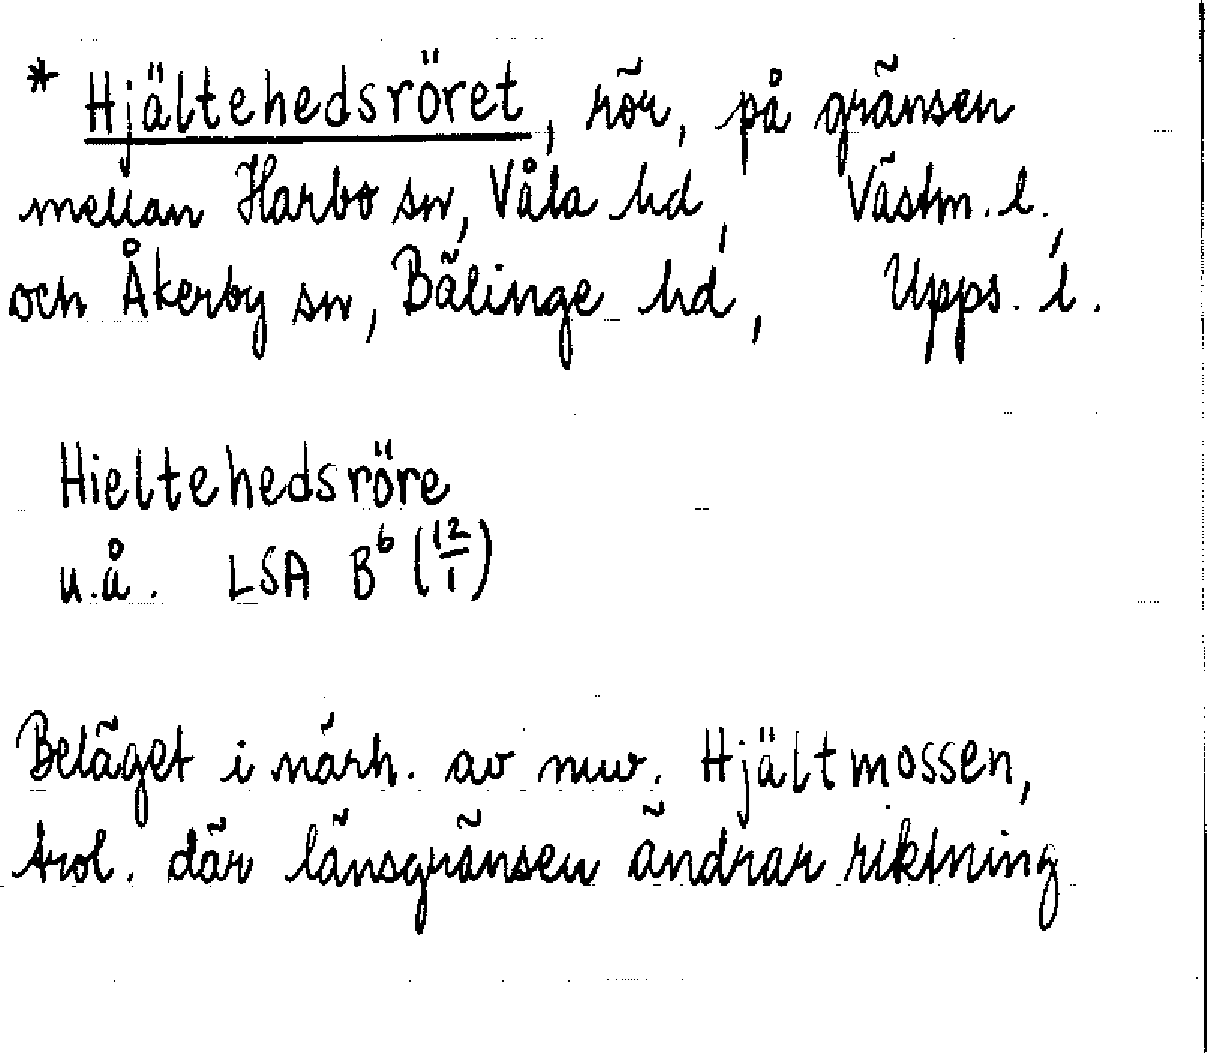 * Hjältehedsröret, rör, på gränsen
mellan Harbo sn, Våla hd, Västm. l.,
och Åkerby sn, Bälinge hd, Upps. l.
Hieltehedsröre
u.å. LSA B⁶ (12/1)
Beläget i närh. av nuv. Hjältmossen,
trol. där länsgränsen ändrar riktning